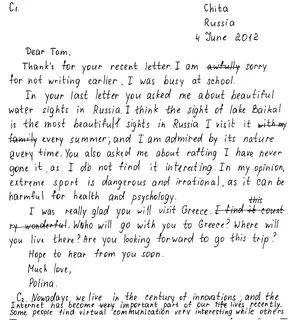 C1.
Chita
Russia
4 June 2012
Dear Tom.
Thank's for your recent letter. I am awfully sorry
for not writing earlier. I was busy at school.
In your last letter you asked me about beautiful
water sights in Russia. I think the sight of lake Baikal
is the most beautiful sights in Russia I visit it with my
family every summer, and I am admired by its nature
every time. You also asked me about rafting I have never
gone it as I do not find it interesting. In my opinion,
extreme sport is dangerous and irrational, as it can be
harmful for health and psychology.
this
I was really glad you will visit Greece. I find it count
ry wonderful. Who will go with you to Greece? Where will
you live there? Are you looking forward to go this trip?
Hope to hear from you soon.
Much love,
Polina.
C2. Nowadays, we live in the century of innovations, and the
Internet has become very important part of our life lives recently.
Some people find virtual communication very interesting while others